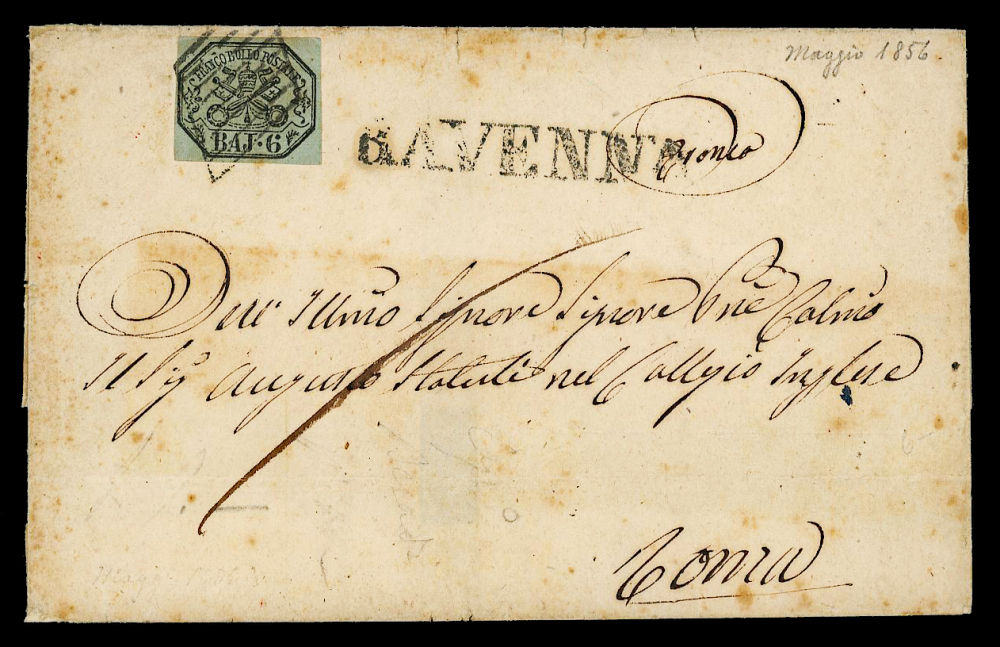 FRANCO BOLLO POSTALE
BAJ·6
Maggio 1856
RAVENNA
Franca
All' Illmo Signore Signore Pne Colmo
Il Sig Augusto Statuti nel Collegio Inglese
6
Roma